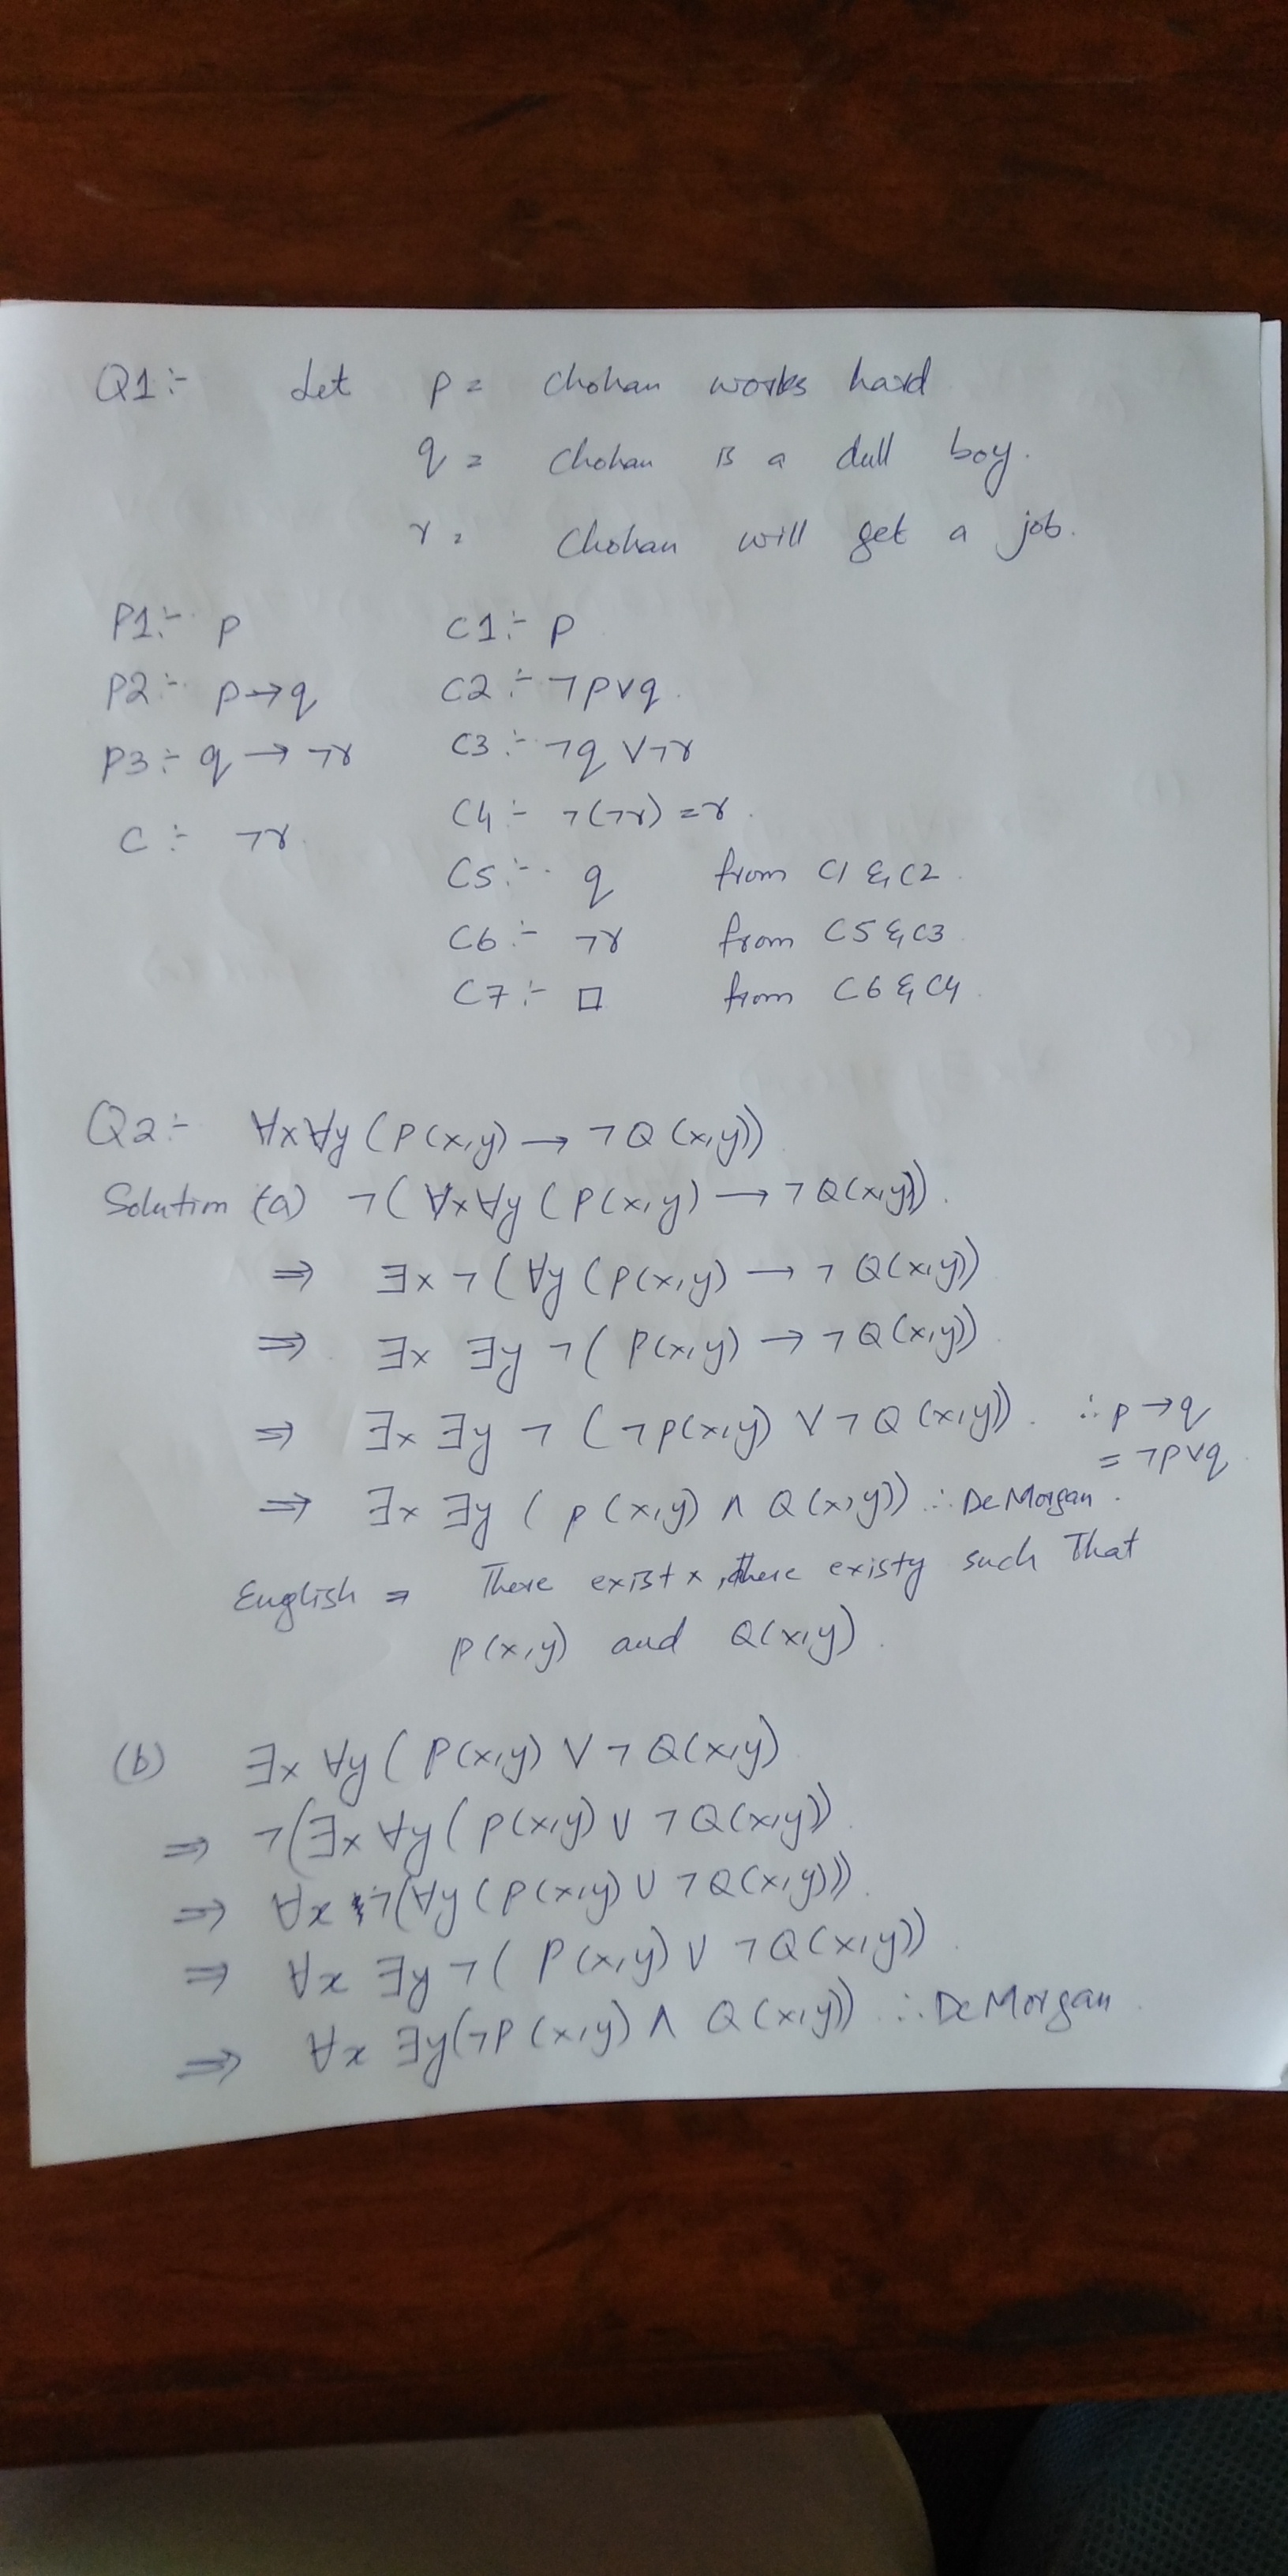 Q1:- Let p = Chohan works hard
q = Chohan is a dull boy.
r = Chohan will get a job.
P1:- p C1:- p
P2:- p→q C2:- ¬p∨q.
P3:- q → ¬r C3:- ¬q ∨¬r
C:- ¬r. C4:- ¬(¬r) = r.
C5:- q from C1 & C2.
C6:- ¬r from C5 & C3
C7:- □ from C6 & C4.
Q2:- ∀x∀y (P(x,y) → ¬Q(x,y))
Solution (a) ¬(∀x∀y (P(x,y) → ¬Q(x,y)).
⇒ ∃x ¬(∀y (P(x,y) → ¬Q(x,y))
⇒ ∃x ∃y ¬(P(x,y) → ¬Q(x,y))
⇒ ∃x ∃y ¬(¬P(x,y) ∨ ¬Q(x,y)). ∴ p → q
= ¬p∨q
⇒ ∃x ∃y (p(x,y) ∧ Q(x,y)) ∴ De Morgan.
English ⇒ There exist x, there exist y such That
p(x,y) and Q(x,y).
(b) ∃x ∀y (P(x,y) ∨ ¬Q(x,y)
⇒ ¬(∃x ∀y (P(x,y) ∪ ¬Q(x,y))
⇒ ∀x ¬(∀y (P(x,y) ∪ ¬Q(x,y))).
⇒ ∀x ∃y ¬(P(x,y) ∪ ¬Q(x,y)).
⇒ ∀x ∃y(¬P(x,y) ∧ Q(x,y)) ∴ De Morgan.